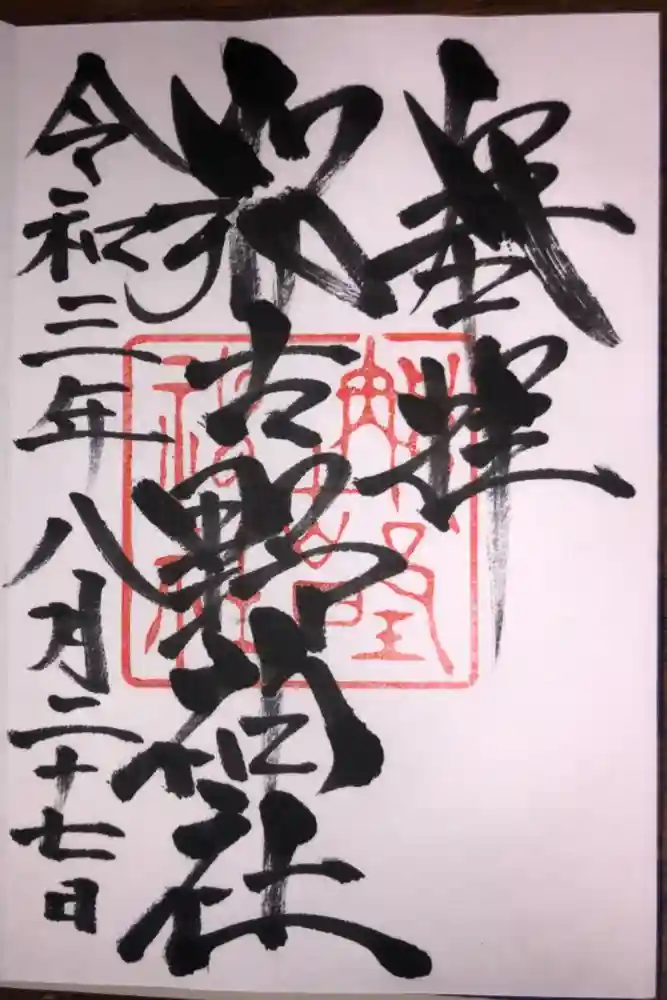 奉拝
古野神社
令和三年八月二十七日